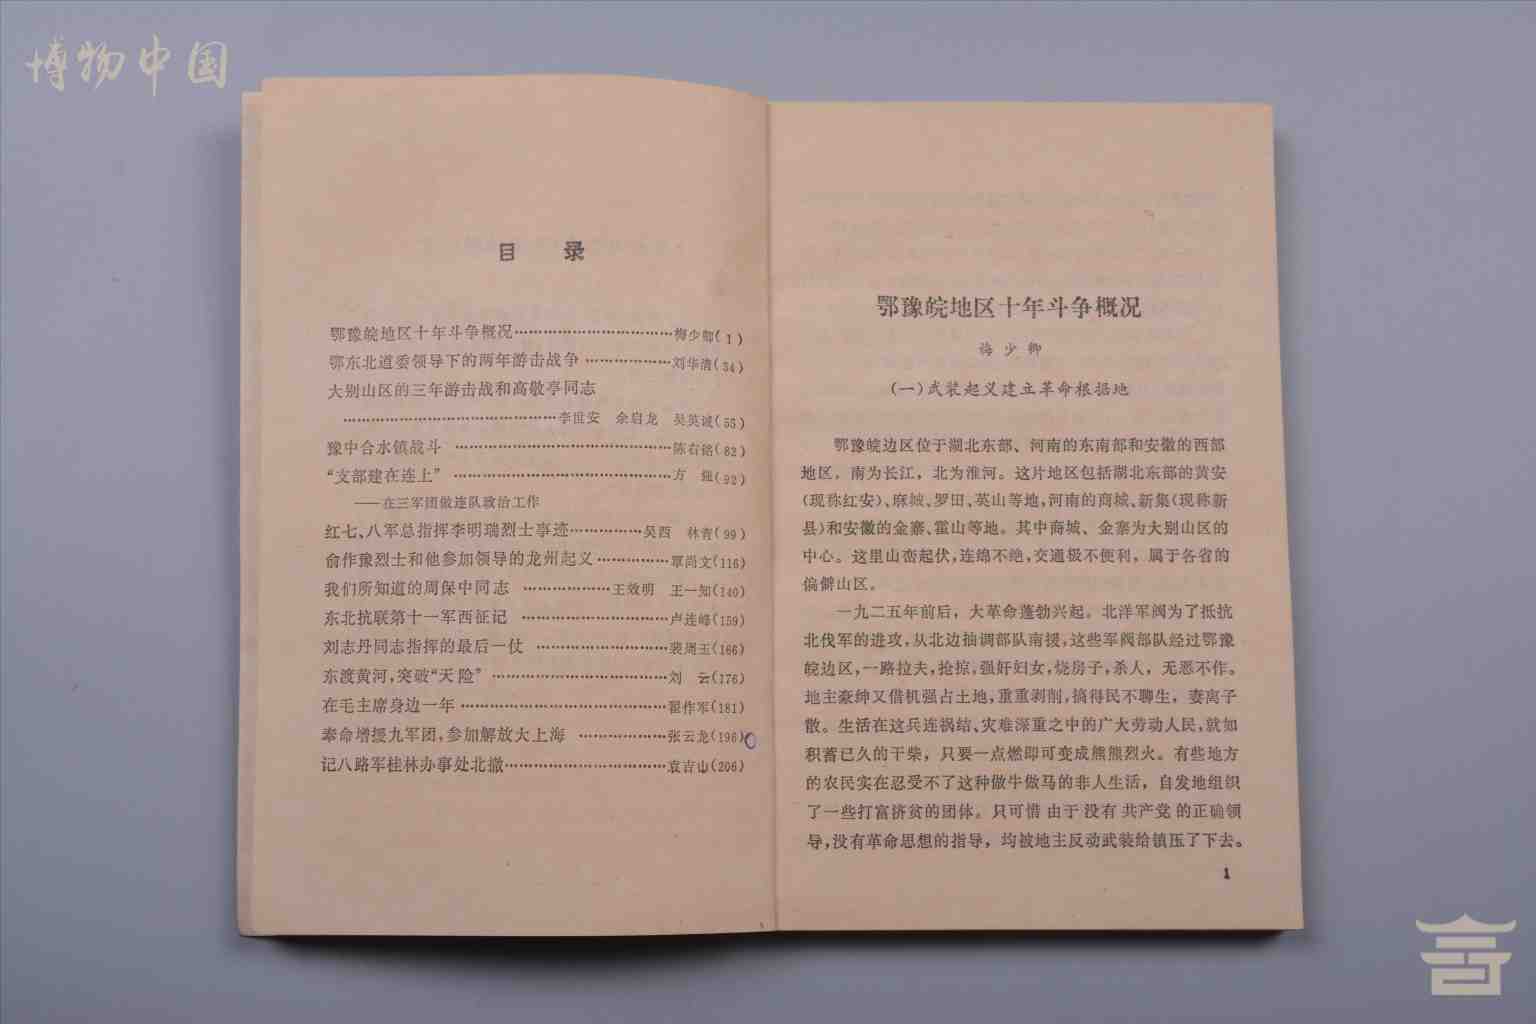 博物中国
目 录
鄂豫皖地区十年斗争概况……………………………梅少卿(1)
鄂东北道委领导下的两年游击战争………………刘华清(34)
大别山区的三年游击战和高敬亭同志
……………………………………李世安 余启龙 吴英诚(55)
豫中合水镇战斗……………………………………陈右铭(82)
“支部建在连上”……………………………………方 强(92)
——在三军团做连队政治工作
红七、八军总指挥李明瑞烈士事迹……………吴西 林青(99)
俞作豫烈士和他参加领导的龙州起义……………覃尚文(116)
我们所知道的周保中同志………………王效明 王一知(140)
东北抗联第十一军西征记…………………………卢连峰(159)
刘志丹同志指挥的最后一仗………………………裴周玉(166)
东渡黄河,突破“天险”………………………………刘 云(176)
在毛主席身边一年…………………………………翟作军(181)
奉命增援九军团,参加解放大上海………………张云龙(196)
记八路军桂林办事处北撤…………………………袁吉山(206)
鄂豫皖地区十年斗争概况
梅少卿
(一)武装起义建立革命根据地
鄂豫皖边区位于湖北东部、河南的东南部和安徽的西部
地区，南为长江，北为淮河。这片地区包括湖北东部的黄安
(现称红安)、麻城、罗田、英山等地,河南的商城、新集(现称新
县)和安徽的金寨、霍山等地。其中商城、金寨为大别山区的
中心。这里山峦起伏,连绵不绝,交通极不便利，属于各省的
偏僻山区。
一九二五年前后，大革命蓬勃兴起。北洋军阀为了抵抗
北伐军的进攻,从北边抽调部队南援,这些军阀部队经过鄂豫
皖边区,一路拉夫,抢掠,强奸妇女,烧房子,杀人，无恶不作。
地主豪绅又借机强占土地,重重剥削,搞得民不聊生，妻离子
散。生活在这兵连祸结、灾难深重之中的广大劳动人民,就如
积蓄已久的干柴，只要一点燃即可变成熊熊烈火。有些地方
的农民实在忍受不了这种做牛做马的非人生活，自发地组织
了一些打富济贫的团体。只可惜由于没有共产党的正确领
导,没有革命思想的指导，均被地主反动武装给镇压了下去。
1